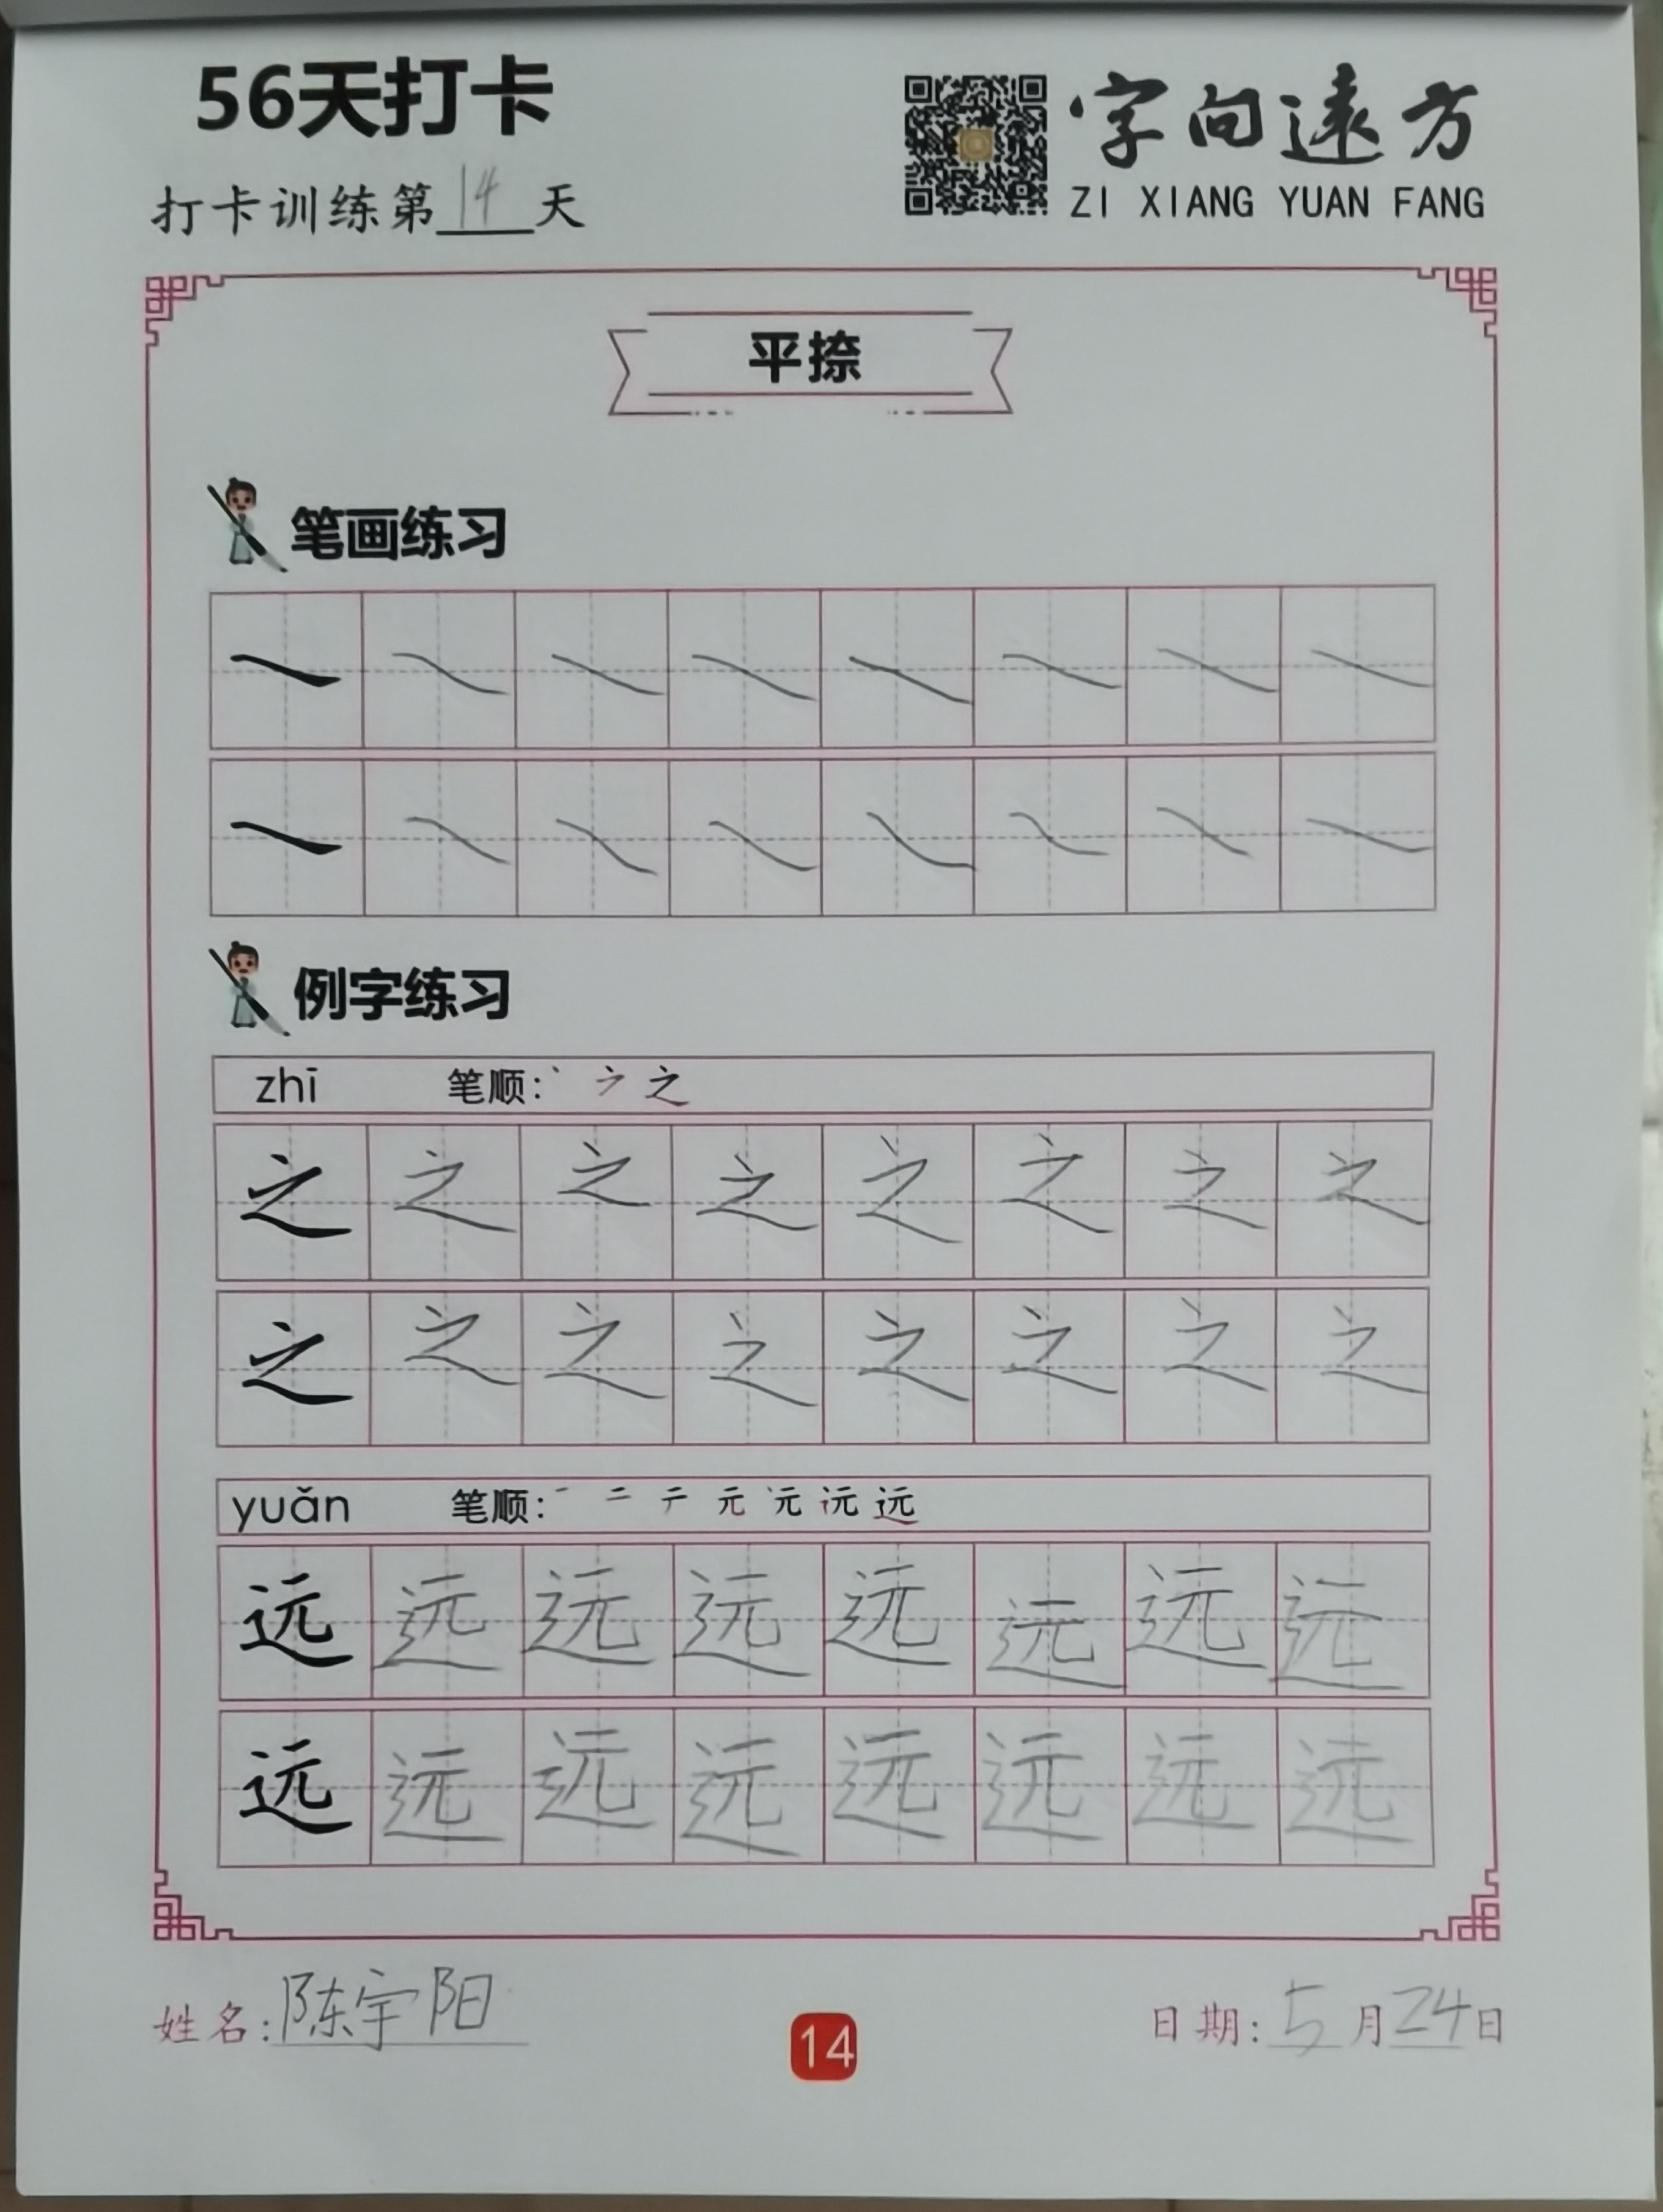 56天打卡
字向遠方
打卡训练第14天
ZI XIANG YUAN FANG
平捺
笔画练习
例字练习
zhī 笔顺: 丶 之
之 之 之 之 之 之 之 之
之 之 之 之 之 之 之 之
yuǎn 笔顺: 一 二 テ 元 远
远 远 远 远 远 远 远 远
远 远 远 远 远 远 远 远
姓名: 陈宇阳
14
日期: 5月24日